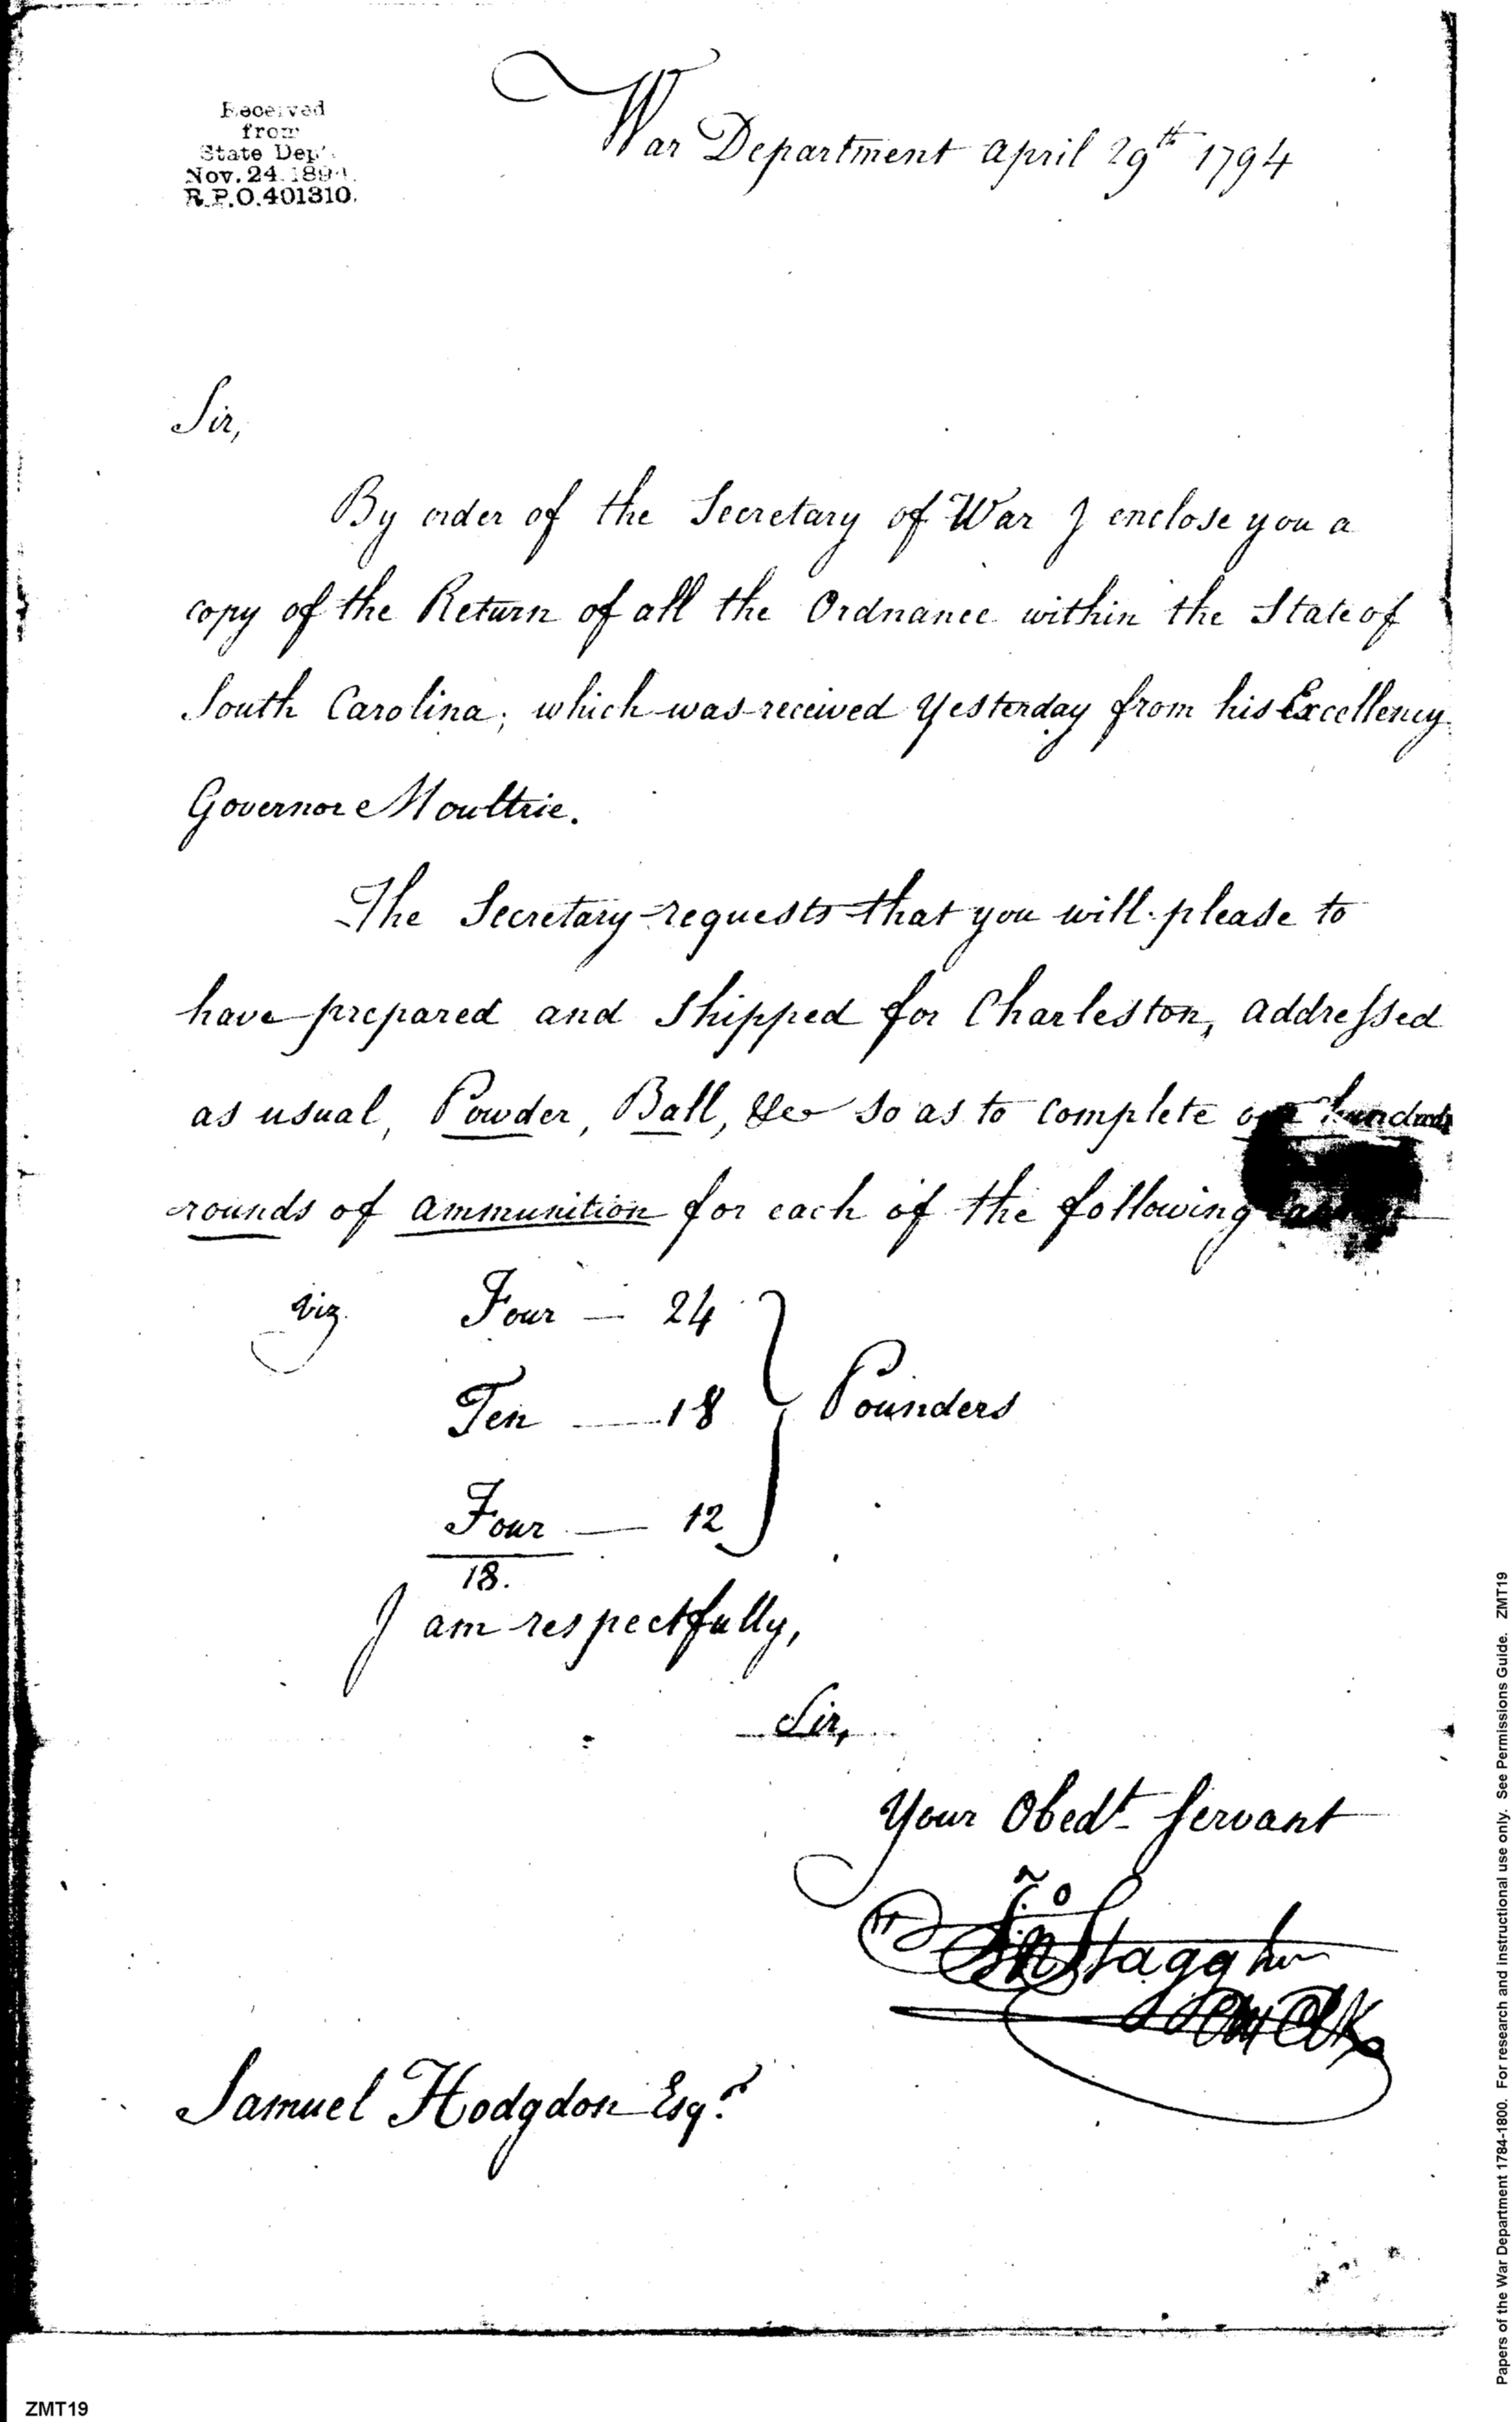 Received
from
State Dep't.
Nov. 24. 1894.
R.P.O. 401310.
War Department April 29th 1794
Sir,
By order of the Secretary of War I enclose you a
copy of the Return of all the Ordnance within the State of
South Carolina; which was received Yesterday from his Excellency
Governor Moultrie.
The Secretary requests that you will please to
have prepared and shipped for Charleston, addressed
as usual, Powder, Ball, &c so as to complete one hundred
rounds of ammunition for each of the following
viz. Four — 24
Ten — 18 } Pounders
Four — 12
18.
I am respectfully,
Sir,
Your Obedt. Servant
Jno Stagg Jnr
Samuel Hodgdon Esqr.
ZMT19
Papers of the War Department 1784-1800. For research and instructional use only. See Permissions Guide. ZMT19